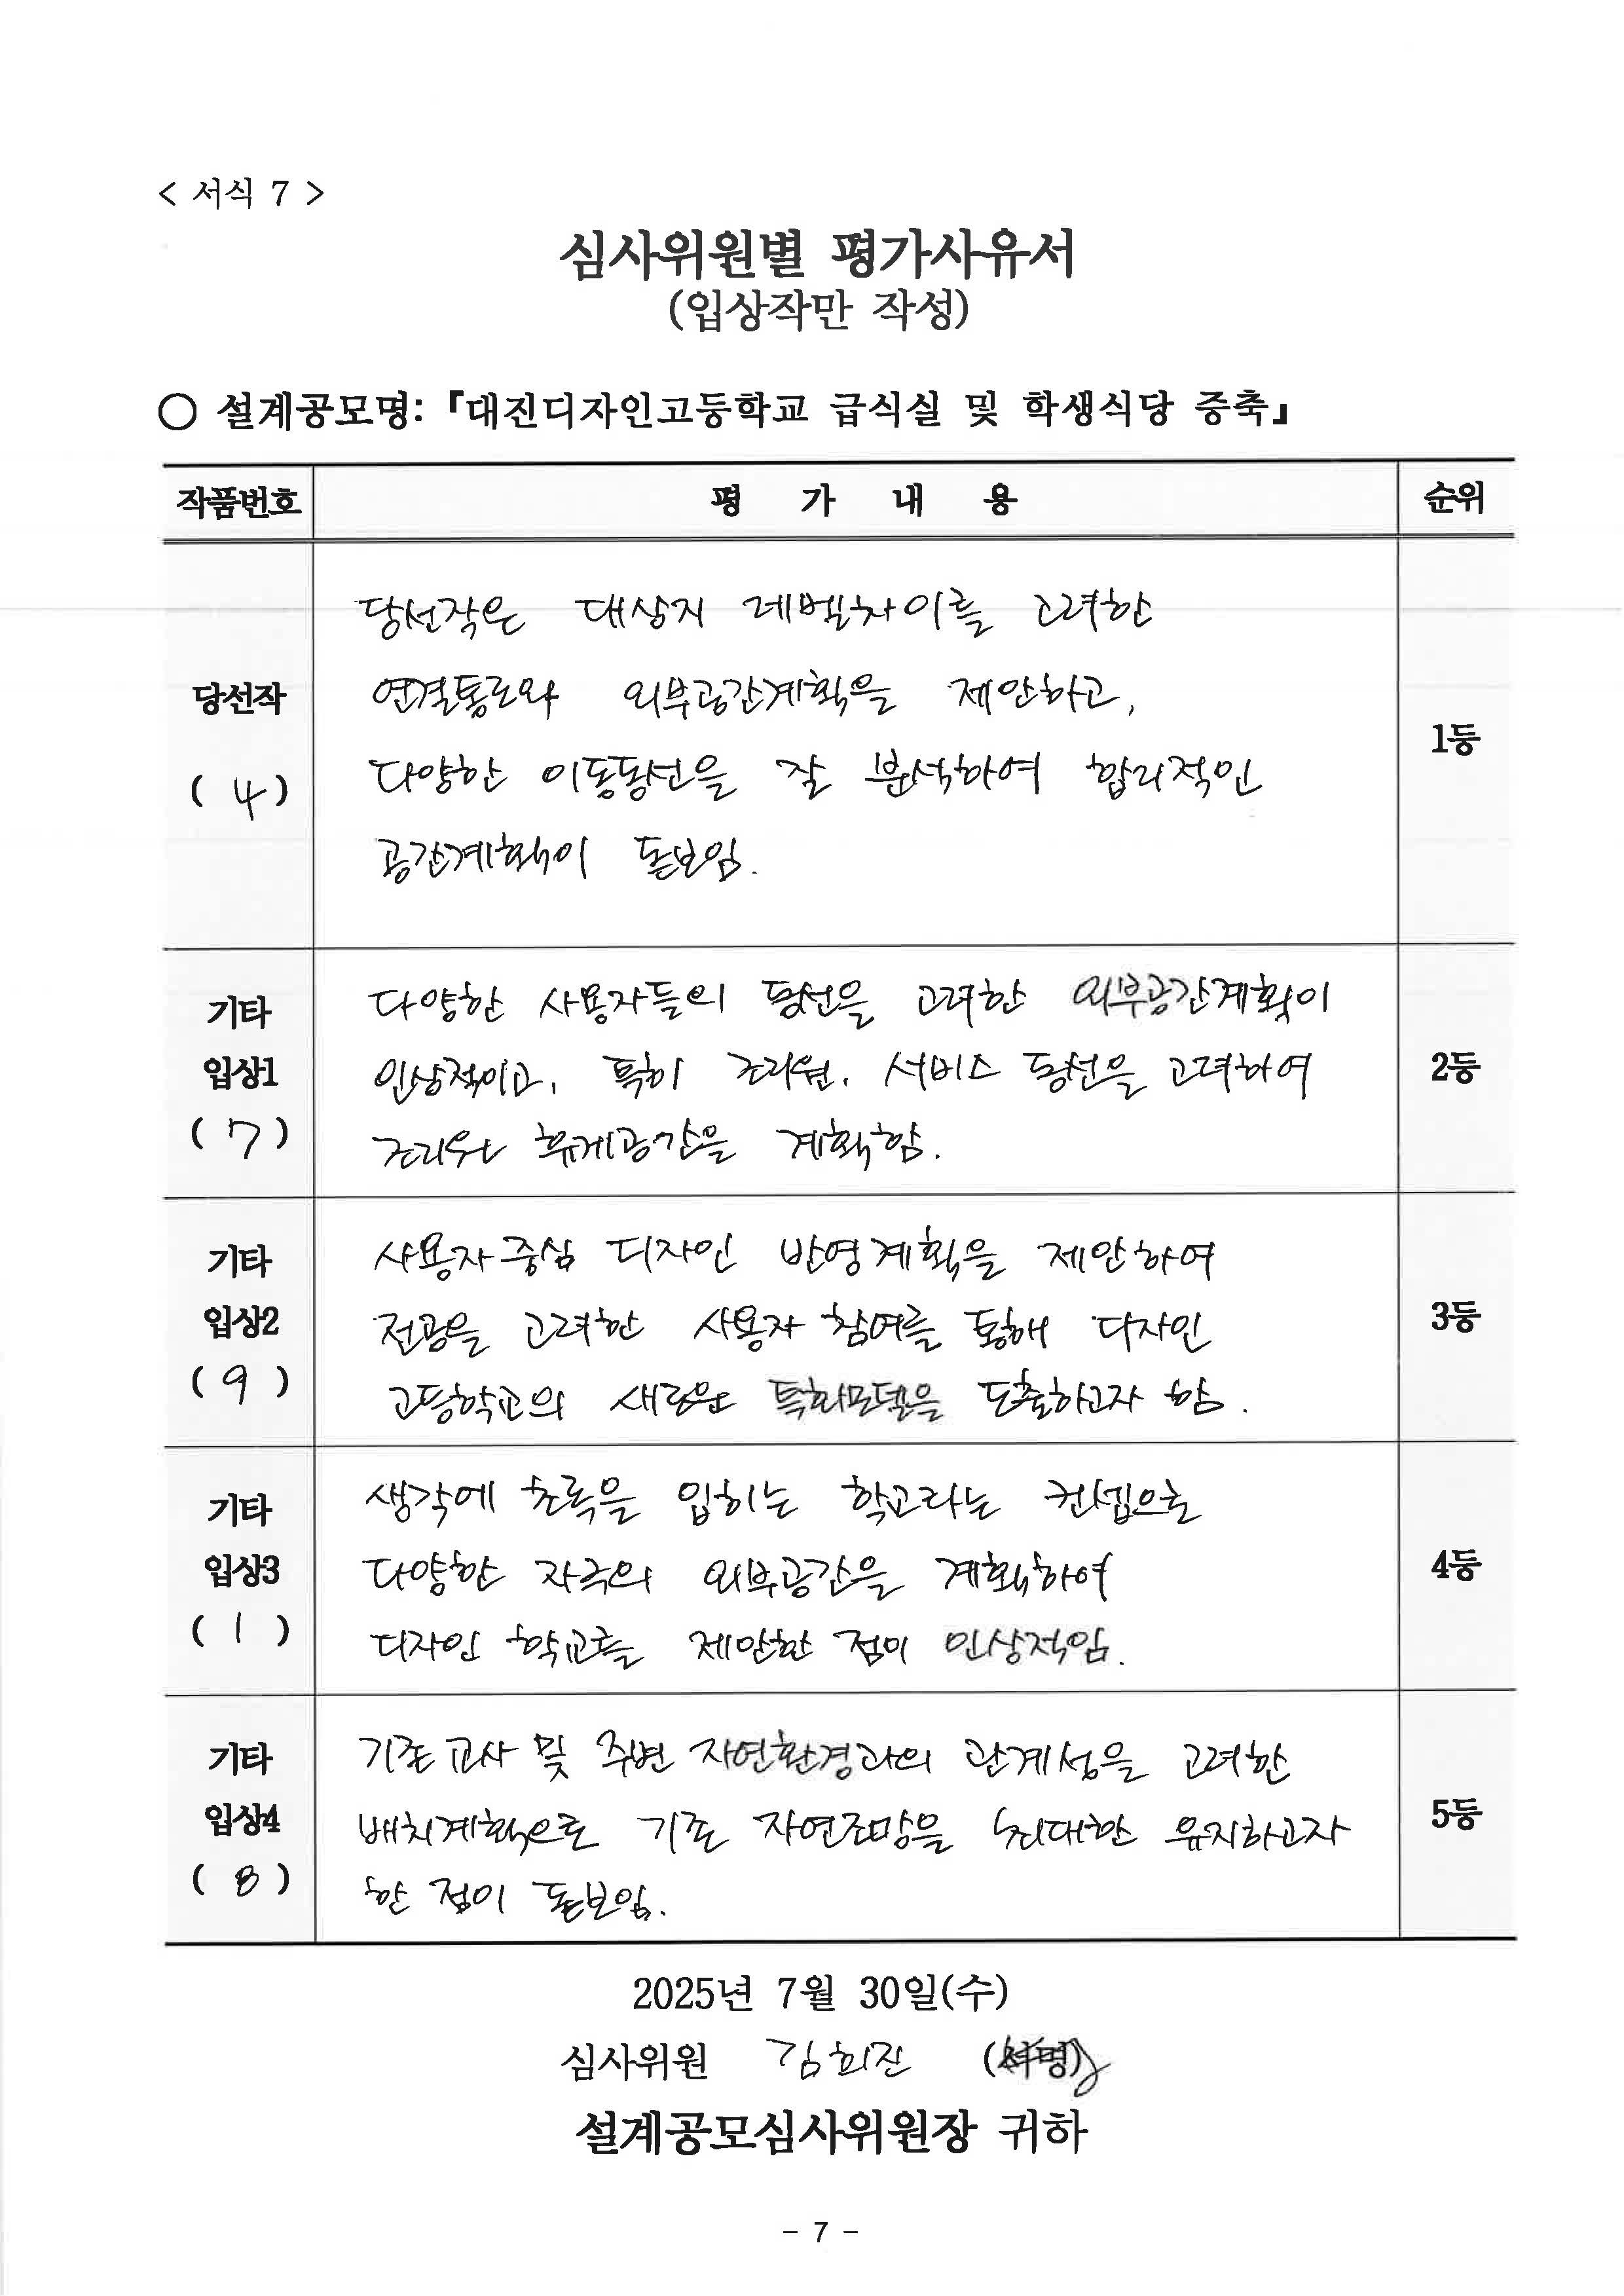 < 서식 7 >
심사위원별 평가사유서
(입상작만 작성)
○ 설계공모명: 「대진디자인고등학교 급식실 및 학생식당 증축」
작품번호 평 가 내 용 순위
당선작
( 4 )
당선작은 대상지 레벨차이를 고려한
연결통로와 외부공간계획을 제안하고,
다양한 이동동선을 잘 분석하여 합리적인
공간계획이 돋보임.
1등
기타
입상1
( 7 )
다양한 사용자들의 동선을 고려한 외부공간계획이
인상적이고, 특히 조리원, 서비스 동선을 고려하여
조리원 휴게공간을 계획함.
2등
기타
입상2
( 9 )
사용자 중심 디자인 반영계획을 제안하여
전공을 고려한 사용자 참여를 통해 디자인
고등학교의 새로운 특화모델을 도출하고자 함.
3등
기타
입상3
( 1 )
생각에 초록을 입히는 학교라는 컨셉으로
다양한 자극의 외부공간을 계획하여
디자인 학교를 제안한 점이 인상적임.
4등
기타
입상4
( 8 )
기존 교사 및 주변 자연환경과의 관계성을 고려한
배치계획으로 기존 자연조망을 최대한 유지하고자
한 점이 돋보임.
5등
2025년 7월 30일(수)
심사위원 김희진 (서명)
설계공모심사위원장 귀하
- 7 -